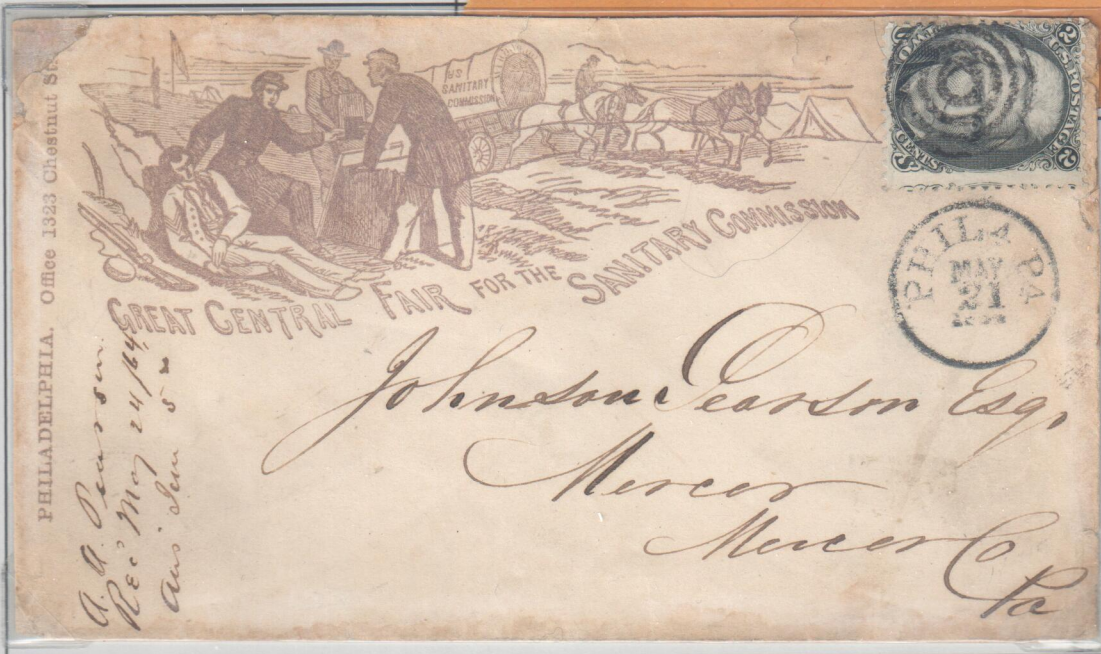 PHILADELPHIA. Office 1323 Chestnut St.
US
SANITARY
COMMISSION
GREAT CENTRAL FAIR FOR THE SANITARY COMMISSION
U.S. POSTAGE
2 2
PHILA PA
MAY
21
Johnson Pearson Esq,
Mercer
Mercer Co
Pa
A. A. Pearson.
Rec' May 24/64
Ans' June 5